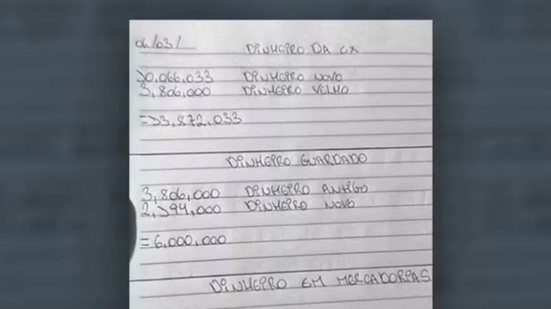 06/03/ DINHEIRO DA CX
10.066,033 DINHEIRO NOVO
3,806,000 DINHEIRO VELHO
=13,872,033
DINHEIRO GUARDADO
3,806,000 DINHEIRO ANTIGO
2,194,000 DINHEIRO NOVO
=6,000,000
DINHEIRO EM MERCADORIAS